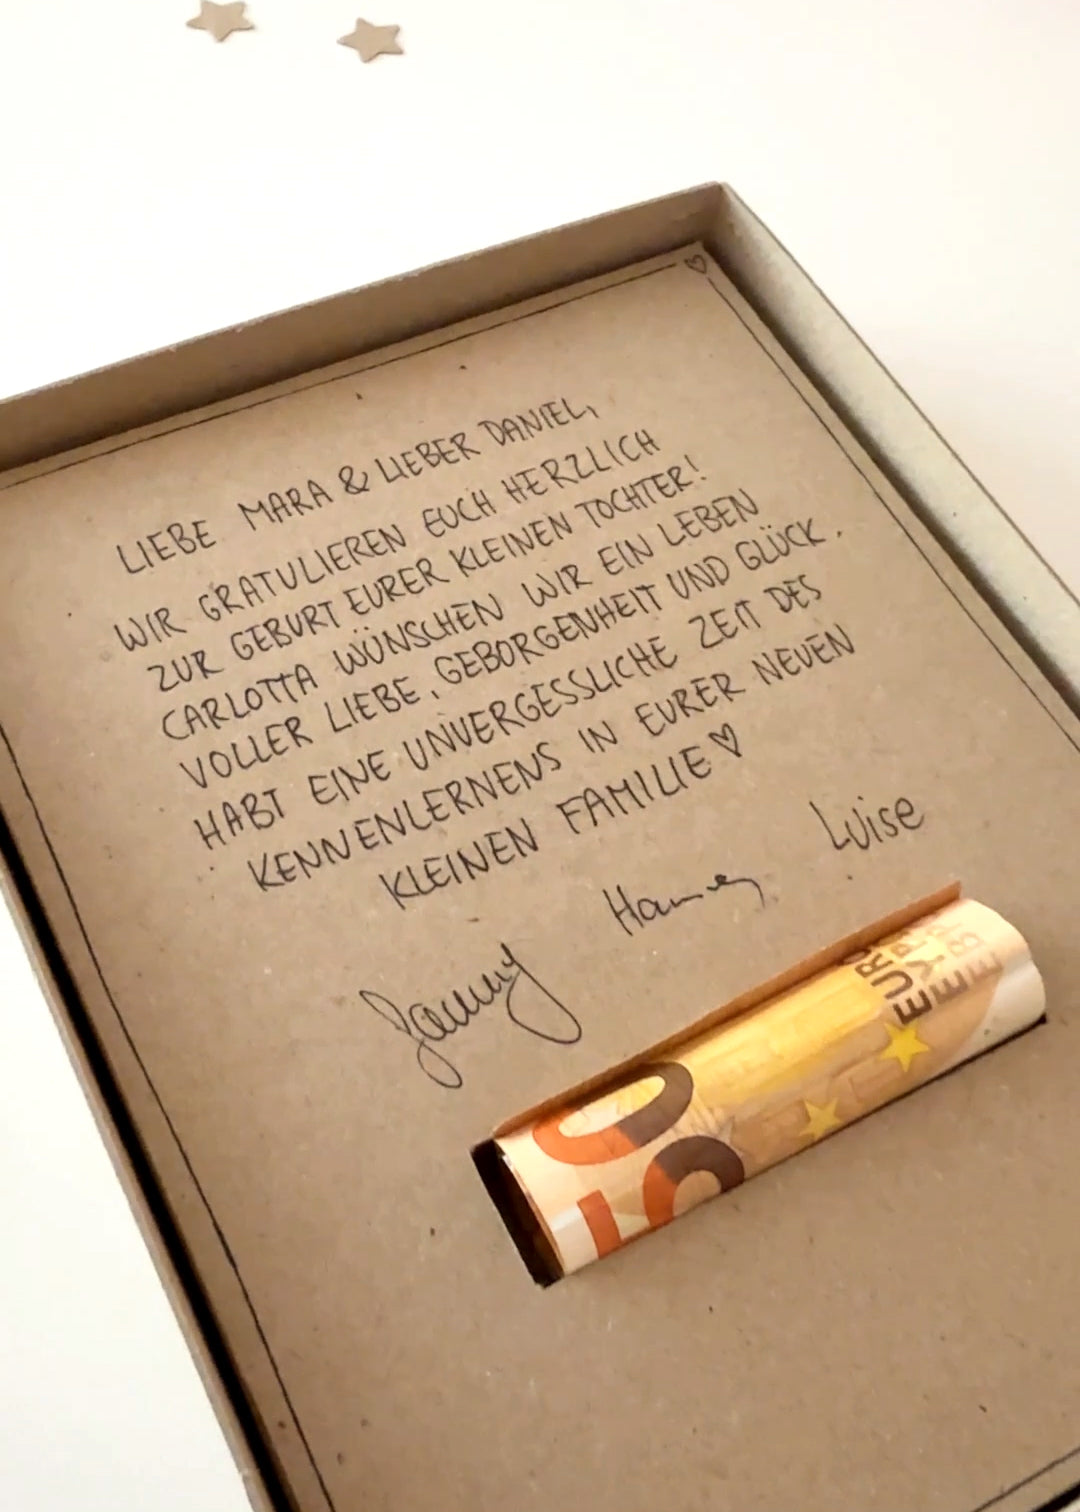 LIEBE MARA & LIEBER DANIEL,
WIR GRATULIEREN EUCH HERZLICH
ZUR GEBURT EURER KLEINEN TOCHTER!
CARLOTTA WÜNSCHEN WIR EIN LEBEN
VOLLER LIEBE, GEBORGENHEIT UND GLÜCK.
HABT EINE UNVERGESSLICHE ZEIT DES
KENNENLERNENS IN EURER NEUEN
KLEINEN FAMILIE ♡
Luise
50
EURO
ΕΥΡΩ